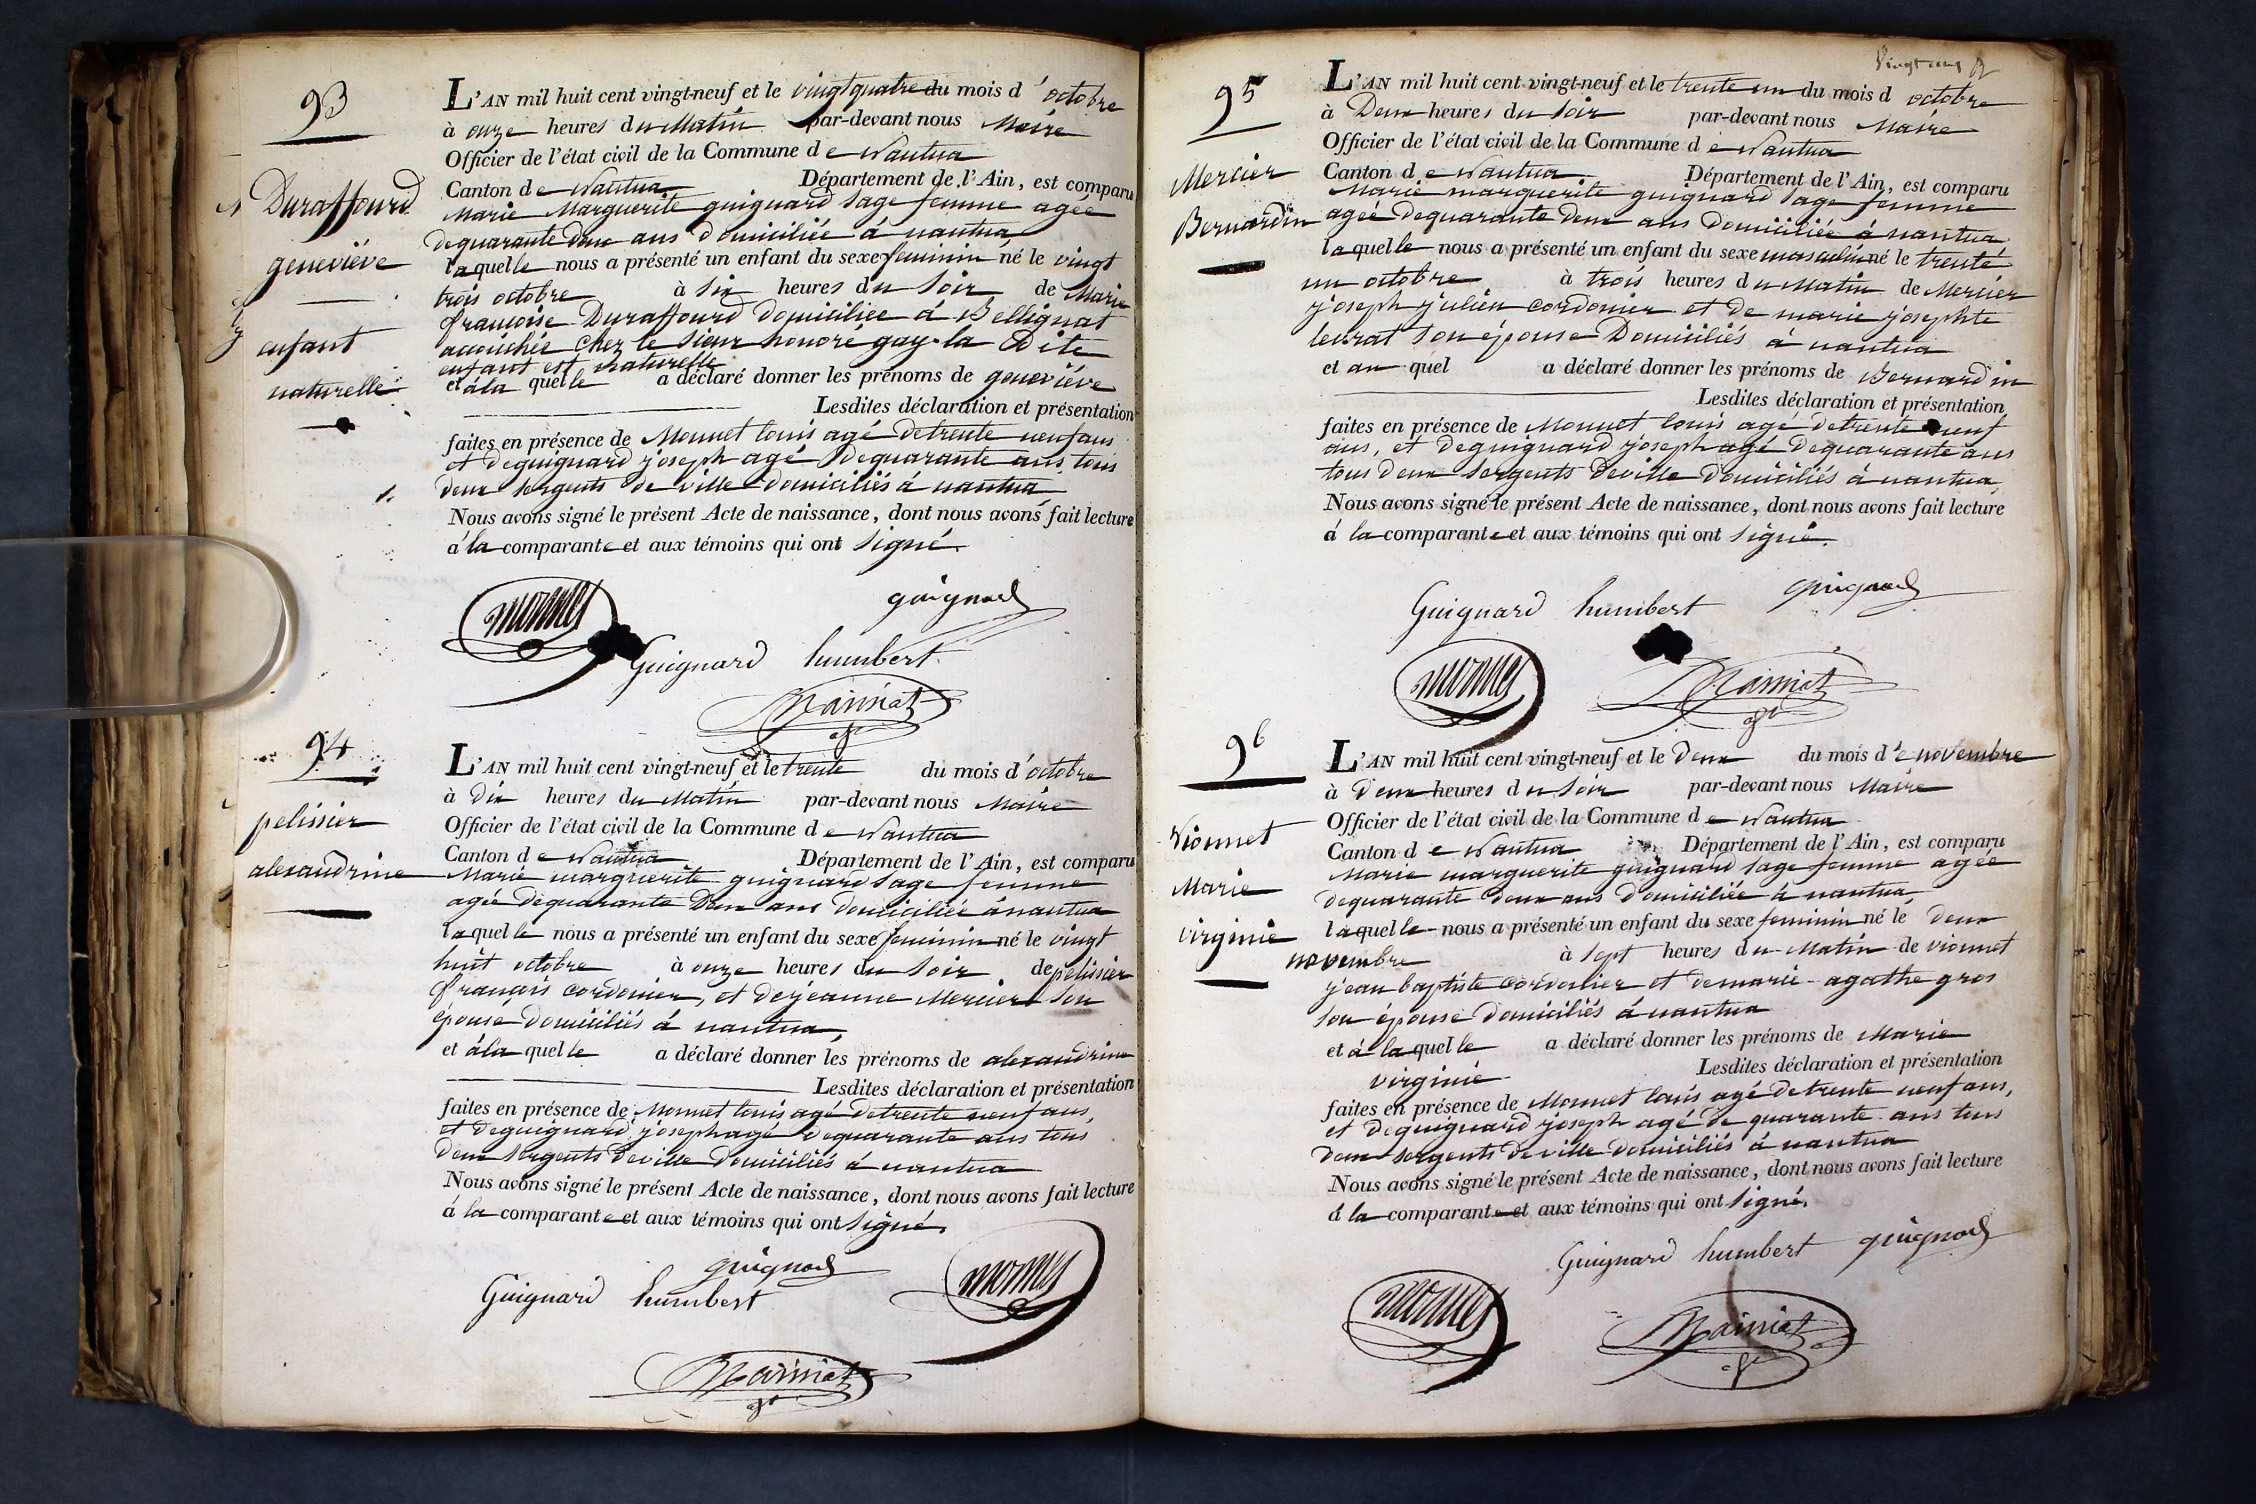 93
Duraffourd
geneviéve
enfant
naturelle
L'AN mil huit cent vingt-neuf et le vingt quatre du mois d'octobre
à onze heures du Matin par-devant nous Maire
Officier de l'état civil de la Commune de Nantua
Canton de Nantua Département de l'Ain, est comparu
Marie Marguerite guignard sage femme agée
de quarante deux ans domiciliée á nantua
laquelle nous a présenté un enfant du sexe feminin né le vingt
trois octobre à six heures du soir de Marie
françoise Duraffourd domiciliée á Bellignat
accouchée chez le sieur honoré gay la Dite
enfant est naturelle
et á la quelle a déclaré donner les prénoms de geneviéve
Lesdites déclaration et présentation
faites en présence de Monnet louis agé de trente neuf ans
et de guignard joseph agé de quarante ans tous
deux sergents de ville domiciliés á nantua
Nous avons signé le présent Acte de naissance, dont nous avons fait lecture
á la comparante et aux témoins qui ont signé.
monnet
guignard
Guignard humbert
94
pelissier
alexandrine
L'AN mil huit cent vingt-neuf et le trente du mois d'octobre
à dix heures du Matin par-devant nous Maire
Officier de l'état civil de la Commune de Nantua
Canton de Nantua Département de l'Ain, est comparu
Marie marguerite guignard sage femme
agée de quarante Deux ans domiciliée á nantua
laquelle nous a présenté un enfant du sexe feminin né le vingt
huit octobre à onze heures du soir de pelissier
françois cordonier, et de jeanne Mercier son
épouse domiciliés á nantua,
et á la quelle a déclaré donner les prénoms de alexandrine
Lesdites déclaration et présentation
faites en présence de Monnet louis agé de trente neuf ans,
et de guignard joseph agé de quarante ans tous
deux sergents de ville domiciliés á nantua
Nous avons signé le présent Acte de naissance, dont nous avons fait lecture
á la comparante et aux témoins qui ont signé.
guignard
Guignard humbert
monnet
95
Mercier
Bernardin
L'AN mil huit cent vingt-neuf et le trente un du mois d octobre
à Deux heures du soir par-devant nous Maire
Officier de l'état civil de la Commune de Nantua
Canton de Nantua Département de l'Ain, est comparu
Marie marguerite guignard sage femme
agée de quarante deux ans domiciliée á nantua
laquelle nous a présenté un enfant du sexe masculin né le trente
un octobre à trois heures du matin de Mercier
joseph julien cordonier et de marie josephte
levrat son épouse Domiciliés á nantua
et au quel a déclaré donner les prénoms de Bernardin
Lesdites déclaration et présentation
faites en présence de Monnet louis agé de trente neuf
ans, et de guignard joseph agé de quarante ans
tous deux sergents de ville domiciliés á nantua,
Nous avons signé le présent Acte de naissance, dont nous avons fait lecture
á la comparante et aux témoins qui ont signé.
Guignard humbert guignard
monnet
96
Vionnet
Marie
virginie
L'AN mil huit cent vingt-neuf et le deux du mois de novembre
à deux heures du soir par-devant nous Maire
Officier de l'état civil de la Commune de Nantua
Canton de Nantua Département de l'Ain, est comparu
Marie marguerite guignard sage femme agée
de quarante deux ans domiciliée á nantua
laquelle nous a présenté un enfant du sexe feminin né le deux
novembre à sept heures du Matin de vionnet
jean baptiste cordonier et de marie agathe gros
son épouse domiciliés á nantua
et á la quelle a déclaré donner les prénoms de Marie
virginie Lesdites déclaration et présentation
faites en présence de Monnet louis agé de trente neuf ans,
et de guignard joseph agé de quarante ans tous
deux sergents de ville domiciliés á nantua
Nous avons signé le présent Acte de naissance, dont nous avons fait lecture
á la comparante et aux témoins qui ont signé.
Guignard humbert guignard
monnet